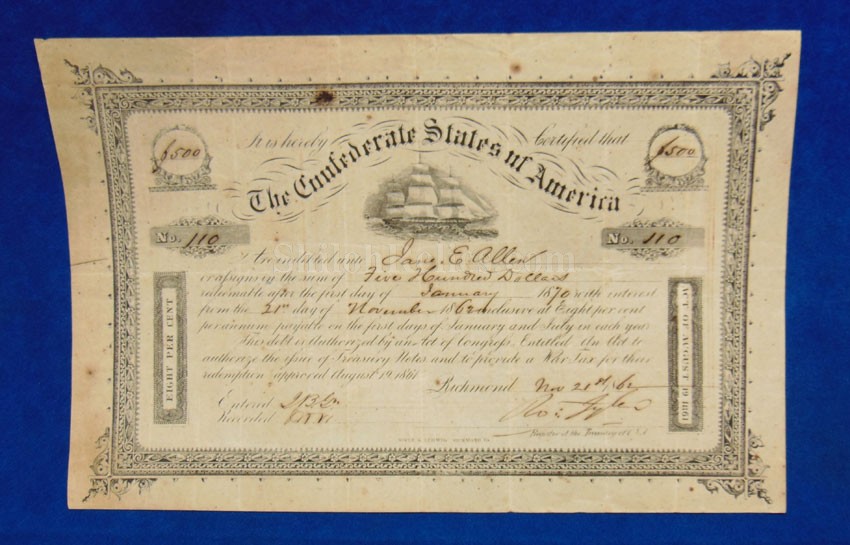 It is hereby Certified that
The Confederate States of America
$500
$500
No. 110
No. 110
Are indebted unto Jane E. Allen
or assigns in the sum of Five Hundred Dollars
redeemable after the first day of January 1870 with interest
from the 21st day of November 1862 inclusive at Eight per cent
per annum payable on the first days of January and July in each year
This debt is authorized by an Act of Congress Entitled An Act to
authorize the issue of Treasury Notes and to provide a War Tax for their
redemption approved August 19, 1861
Richmond Nov 21st, 62
Entered
Recorded
Ro: Tyler
Register of the Treasury
EIGHT PER CENT
ACT OF AUGUST 19 1861